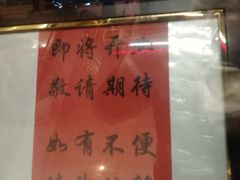 即将开业
敬请期待
如有不便